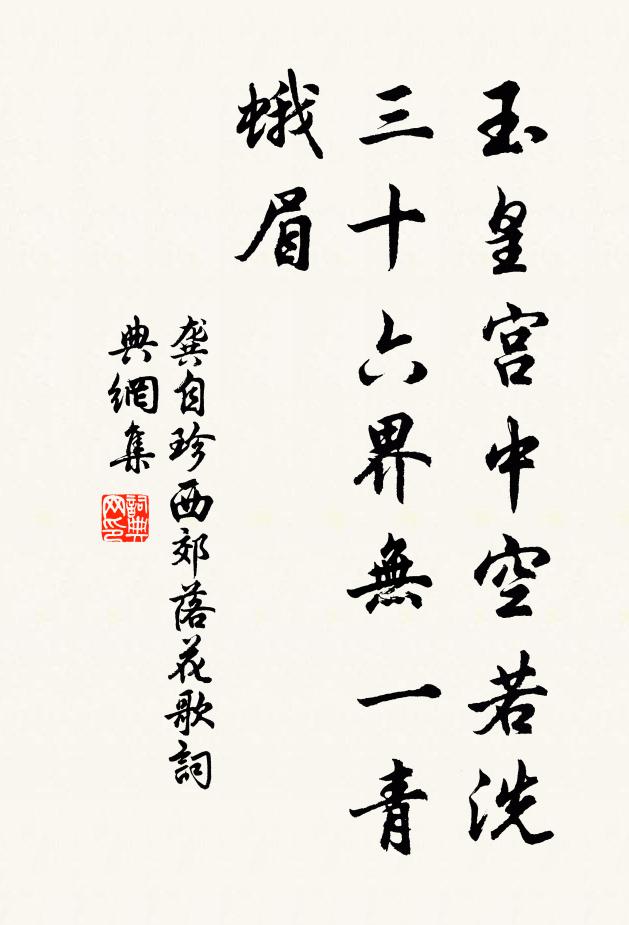 玉皇宮中空若洗
三十六界無一青
蛾眉
龔自珍西郊落花歌詞
典網集
詞典
网印